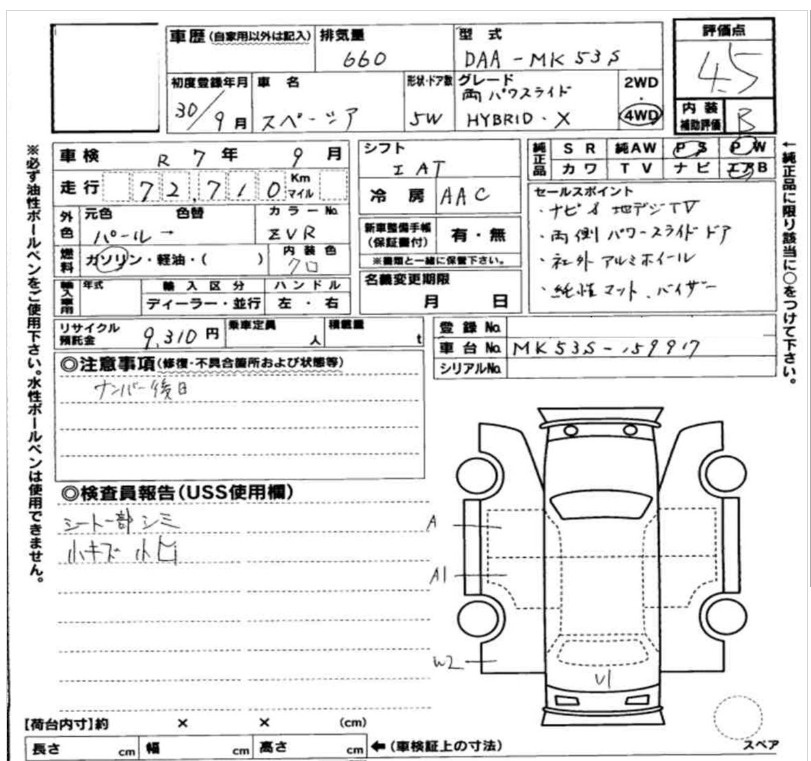 車歴(自家用以外は記入) 排気量 型式 評価点
660 DAA-MK53S 4.5
初度登録年月 車名 形状・ドア数 グレード 2WD
30/9月 スペーシア 5W 両パワスライド HYBRID・X 4WD
内装補助評価 B
※必ず油性ボールペンをご使用下さい。水性ボールペンは使用できません。
←純正品に限り該当に○をつけて下さい。
車検 R7年 9月
走行 72,710 Km マイル
外色 元色 色替 カラーNo.
パール→ ZVR
燃料 ガソリン・軽油・( ) 内装色 クロ
輸入車用 年式 輸入区分 ハンドル
ディーラー・並行 左・右
リサイクル預託金 9,310円 乗車定員 人 積載量 t
シフト
IAT
冷房 AAC
新車整備手帳(保証書付) 有・無
※書類と一緒に保管下さい。
名義変更期限
月 日
純正品 SR 純AW PS PW
カワ TV ナビ エアB
セールスポイント
・ナビ 地デジTV
・両側パワースライドドア
・社外アルミホイール
・純正マット、バイザー
登録No.
車台No. MK53S-159917
シリアルNo.
◎注意事項(修復・不具合箇所および状態等)
ナンバー後日
◎検査員報告(USS使用欄)
シート一部シミ
小キズ 小凹
A
A1
W2
U1
【荷台内寸】約 × × (cm)
長さ cm 幅 cm 高さ cm ←(車検証上の寸法)
スペア